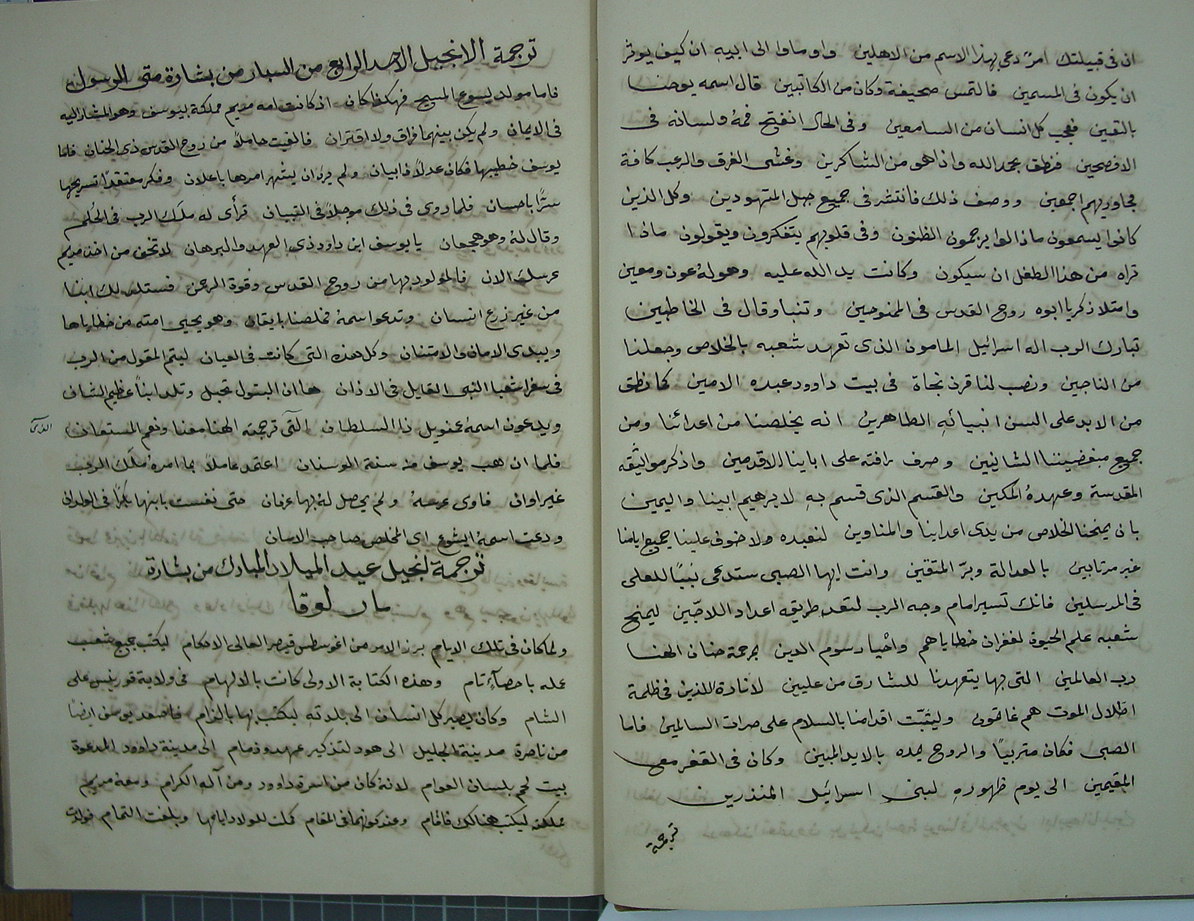 ان في قبيلتك امرٌ دعي بهذا الاسم من الاهلين واوماوا الى ابيه ان كيف يوثر
ان يكون في المسمين فالتمس صحيفة وكان من الكاتبين قال اسمه يوحنا
باليقين فعجب كل انسان من السامعين وفي الحال انفتح فمه ولسانه في
الافصحين فنطق بمجد الله واذا هو من الشاكرين وغشي الفرق والرعب كافة
مجاوريهم اجمعين ووصف ذلك فانتشر في جميع جبل المتهودين وكل الذين
كانوا يسمعون ما زالوا يرجمون الظنون وفي قلوبهم يتفكرون ويقولون ماذا
تراه من هذا الطفل ان سيكون وكانت يد الله عليه وهو له عون ومعين
وامتلا زكريا ابوه روح القدس في الممنوحين وتنبا وقال في الخاطبين
تبارك الرب اله اسرائيل المامون الذى تعهد شعبه بالخلاص وجعلنا
من الناجين ونصب لنا قرن نجاة في بيت داوود عبده الامين كما نطق
من الابد على السن انبيائه الطاهرين انه يخلصنا من اعدائنا ومن
جميع مبغضينا الشانيين وصرف رافته على اباينا الاقدمين واذكر مواثيقه
المقدسة وعهده المكين والقسم الذى قسم به لابرهيم ابينا واليمين
بان يمنحنا الخلاص من يدى اعداينا والمناوين لنعبده ولا خوف علينا جميع ايامنا
غير مرتابين بالعدالة وبرّ المتقين وانت ايها الصبي ستدعى نبيًا للعلى
في المرسلين فانك تسير امام وجه الرب لتعد طريقه اعداد اللاحبين ليمنح
شعبه علم الحيوة لغفران خطاياهم واحياء رسوم الدين برحمة حنان الهنا
رب العالمين التى بها يتعهدنا للشارق من عليين لانارة اللذين في ظلمة
اظلال الموت هم غارقون وليثبّت اقدامنا بالسلام على صراط السالمين فاما
الصبى فكان متربيًا والروح يمده بالايد المبين وكان في القفر مع
المقيمين الى يوم ظهوره لبنى اسرائيل المنذرين
ترجمة
ترجمة الانجيل الاحد الرابع من السبار من بشارة متى الرسول
فاما مولد يسوع المسيح فهكذا كان اذ كانت امه مريم مملكة ليوسف وهو المشار اليه
في الايمان ولم يكن بينهما فراق ولا اقتران فالفيت حاملًا من روح القدس ذى الحنان فلما
يوسف خطيبها فكان عدلًا ذا بيان ولم يرد ان يشهر امرها باعلان وفكر معتقدًا تسريحها
سرًّا باحسان فلما روى في ذلك موجلًا في التبيان ترأى له ملك الرب في الحلم
وقال له وهو هجعان يا يوسف ابن داوود ذى العهد والبرهان لا تخف من اخذ مريم
عرسك الان فالمولود بها من روح القدس وقوة الرحمن فستلد لك ابنا
من غير زرع انسان وتدعوا اسمه مخلصنا بايقان وهو يحيى امته من خطاياها
ويبدى الامان والامتنان وكل هذه التى كانت في العيان ليتم المقول من الرب
في سفر اشعيا النبى القايل في الاذان ها ان البتول تحبل وتلد ابنًا عظيم الشان
ويدعون اسمه عمنويل ذا السلطان التى ترجمته الهنا معنا ونعم المستعان
فلما ان هب يوسف من سنة الوسنان اعتمد عاملًا بما امره ملك الرب
غير وانى فاوى عرسه ولم يحصل له بها عرفان حتى نفست بابنها بكرًا في الولدان
ودعت اسمه ايشوع اى المخلص صاحب الامان
ترجمة انجيل عيد الميلاد المبارك من بشارة
مار لوقا
ولما كان في تلك الايام برز الامر من اغوسطس قيصر العالى الاحكام ليكتب جميع شعب
عمله باحصآءٍ تام وهذه الكتابة الاولى كانت بالالهام في ولاية قورينس على
الشام وكان يصير كل انسان الى بلدته ليكتب بها بالزام فاصعد يوسف ايضا
من ناصرة مدينة الجليل الى هود لتذكير عهد وذمام الى مدينة داوود المدعوة
بيت لحم بلسان العوام لانه كان من اسرة داوود ومن آله الكرام ومعه مريم
مملكته ليكتب هنالك فاقام وعند كونهما في المقام كملت للولاد ايامها وبلغت التمام فولدت